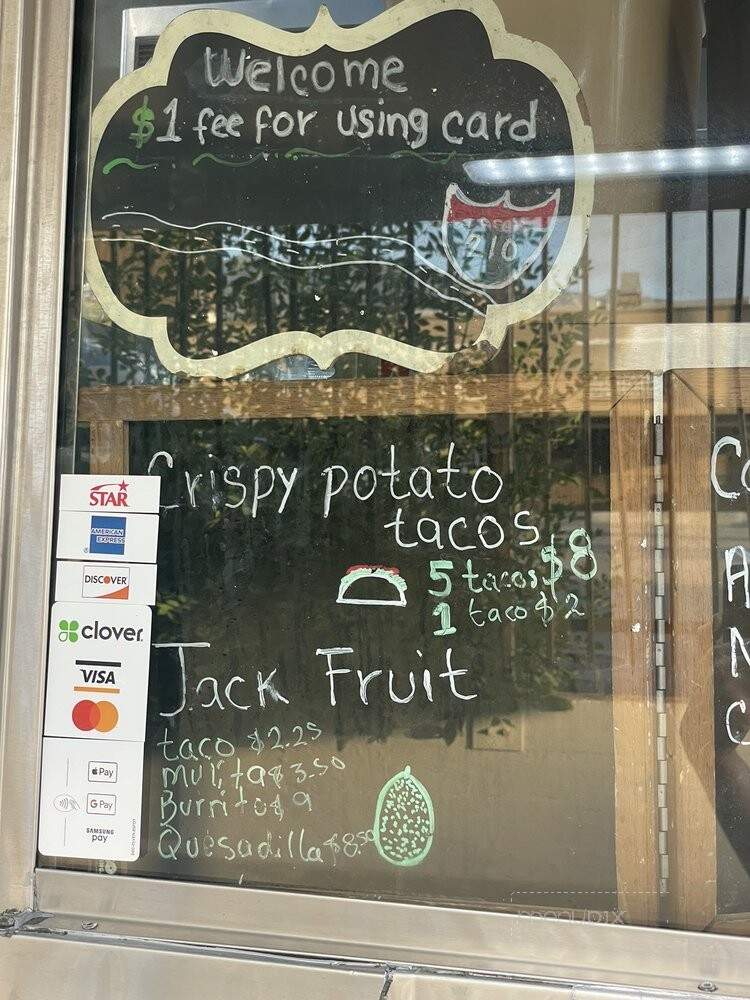 Welcome
$1 fee for using card
210
Crispy potato
tacos
5 tacos $8
1 taco $2
Jack Fruit
taco $2.25
mulita $3.50
Burrito $9
Quesadilla $8.50
STAR
AMERICAN
EXPRESS
DISCOVER
clover
VISA
Pay
G Pay
SAMSUNG
pay
menupix